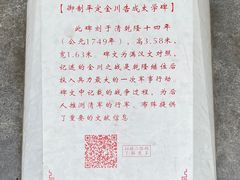 【御制平定金川告成太学碑】
此碑刻于清乾隆十四年
(公元1749年),高3.58米,
宽1.63米。碑文为满汉文对照,
记述的金川之战是乾隆继位后
投入兵力最大的一次军事行动。
碑文中记载的战争过程,为后
人推测清军的行军、布阵提供
了重要的文献信息。